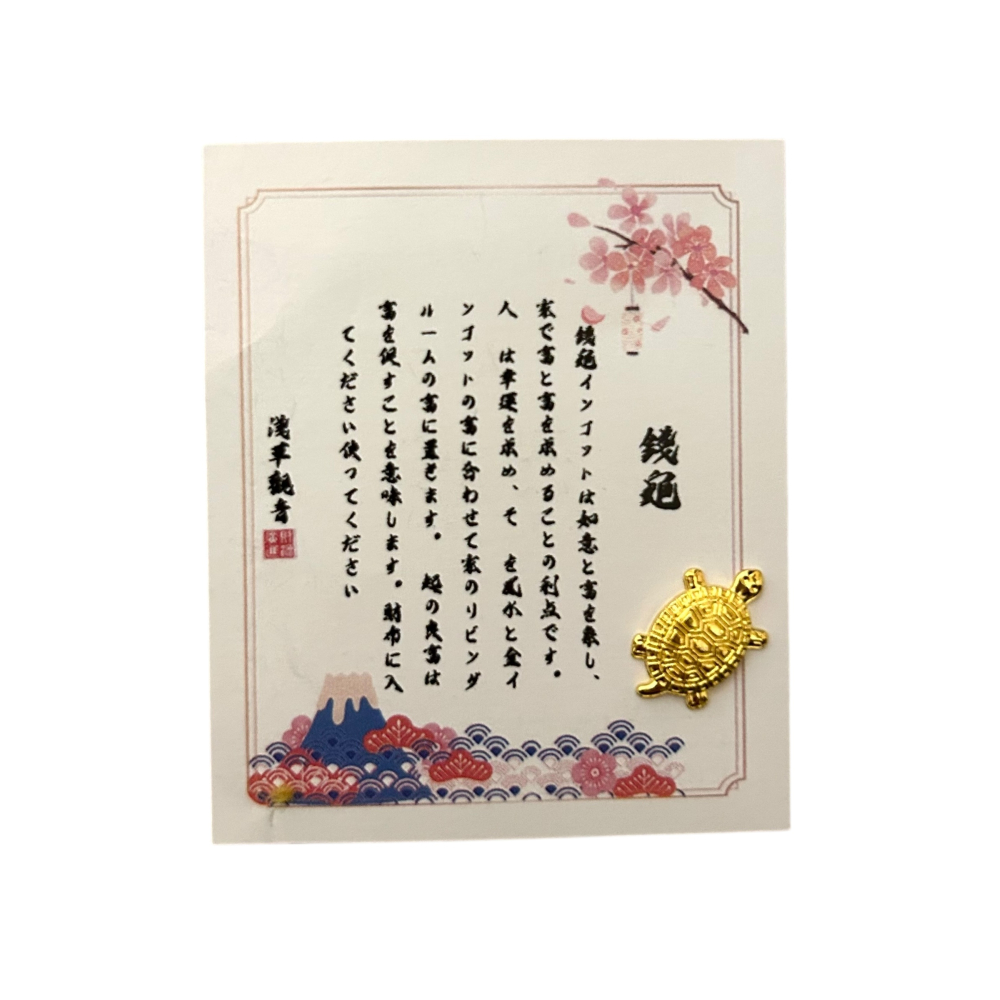 銭亀
銭亀インゴットは如意と富を象し、
家で富と富を求めることの利点です。
人 は幸運を求め、そ を風水と金イ
ンゴットの富に合わせて家のリビング
ルームの富に置きます。 超の良富は
富を促すことを意味します。財布に入
てください使ってください
浅草観音